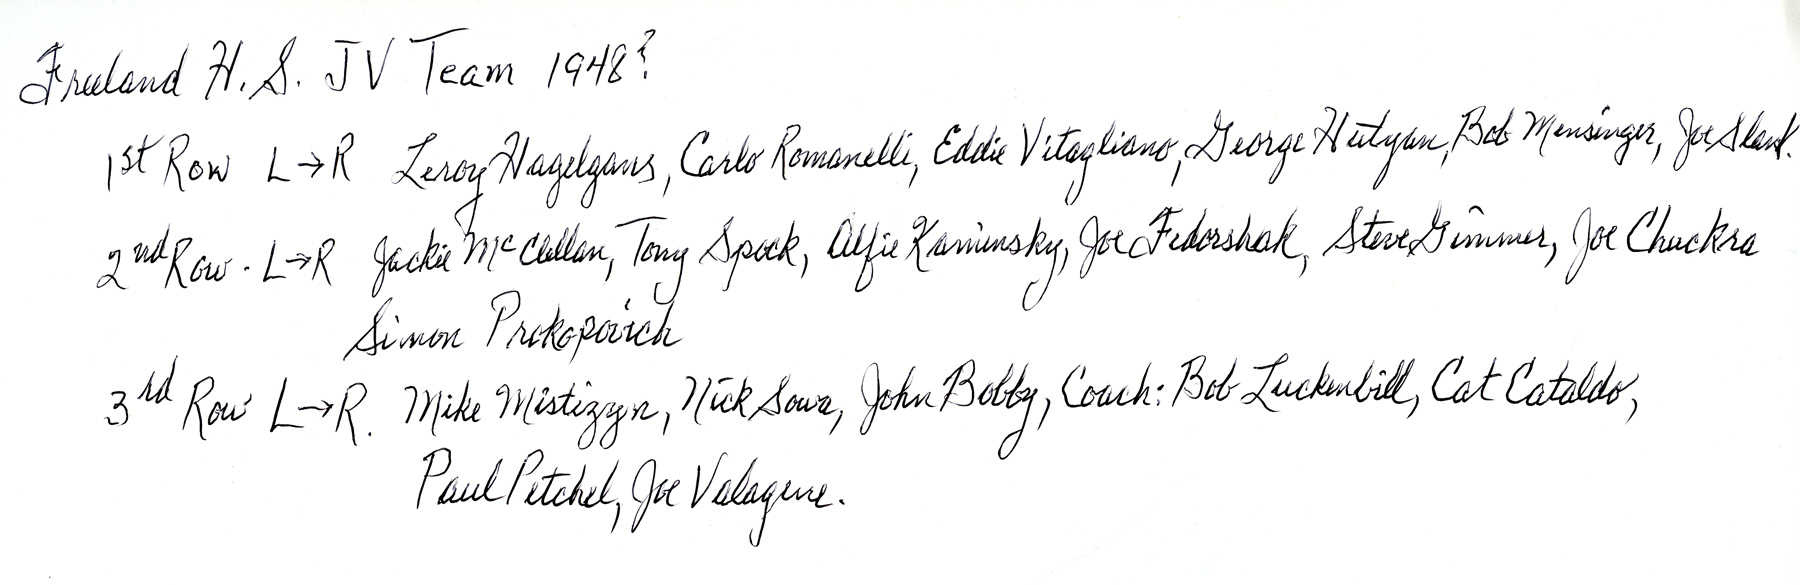 Freeland H. S. JV Team 1948?
1st Row L→R Leroy Hagelgans, Carlo Romanelli, Eddie Vitagliano, George Hutyan, Bob Mensinger, Joe
2nd Row. L→R Jackie McClellan, Tony Spock, Alfie Kaminsky, Joe Fedorshak, Steve Gimmer, Joe Chuckra
Simon Prokopovich
3rd Row L→R. Mike Mistizyn, Nick Sowa, John Bobby, Coach: Bob Luckenbill, Cat Cataldo,
Paul Petchel, Joe Valagene.